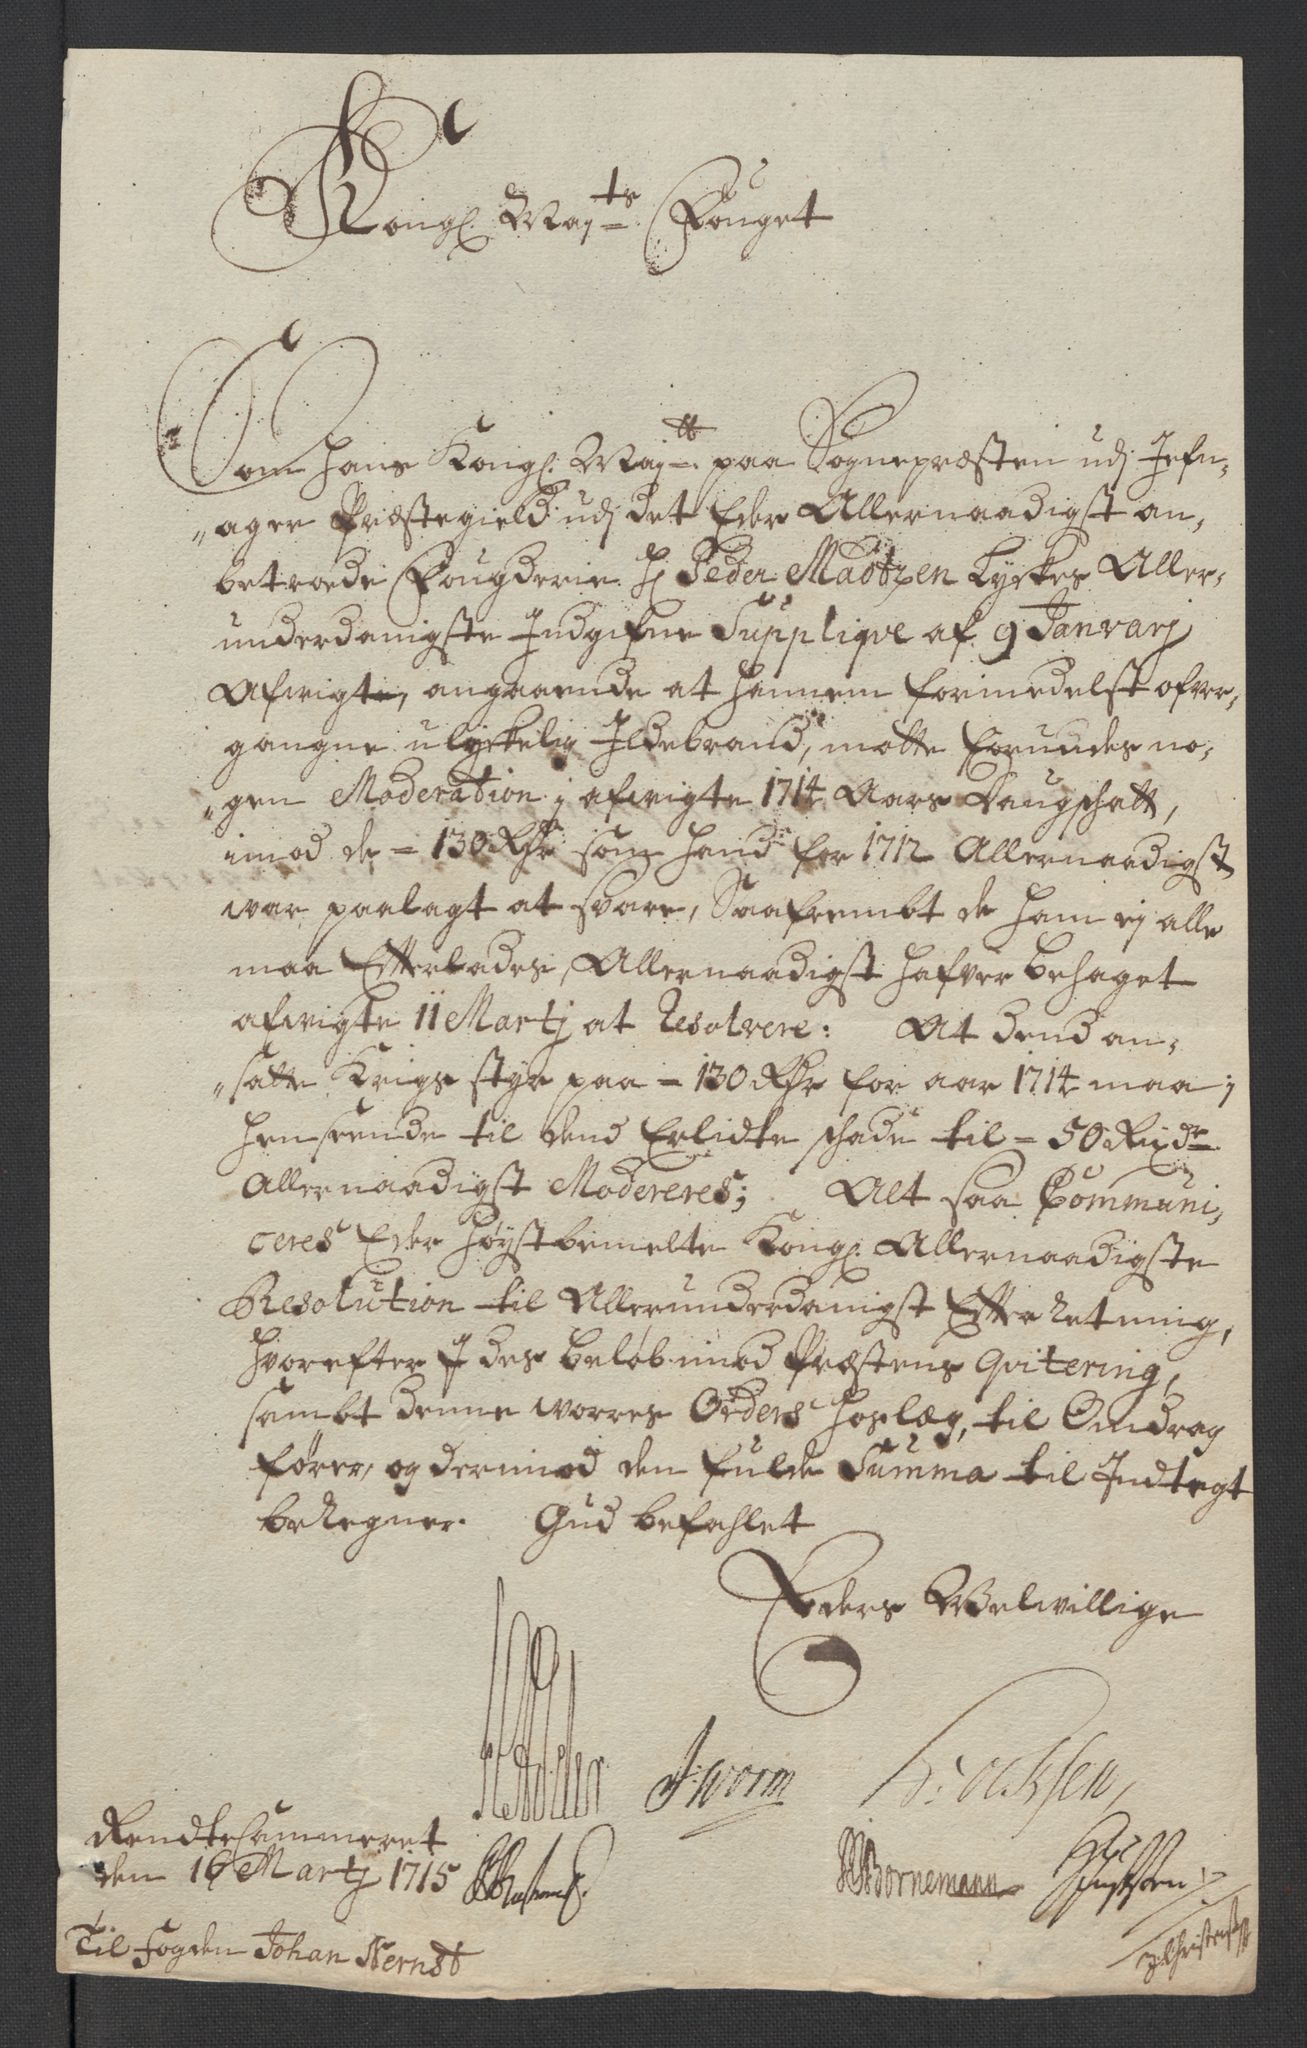 Kongl. Maj:ts Fouget
Som hans Kongl. Maj:tt paa Sognepræsten udj Jefn-
ager Præstegield udj det Eder Allernaadigst an-
betroede Fougderie Hr Peder Madtzen Lyckes Aller-
underdanigste Indgifne Supplique af 9 Janvarj
Afvigte, angaaende at hannem formedelst ofver-
gangne ulykkelig Ildebrand, motte forundes no-
gen Moderation j afvigte 1714 Aars Daugschatt,
imod de - 130 Rdr som hand for 1712 Allernaadigst
war paalagt at svare, Saafrembt de ham ej alle
maa Efterlades, Allernaadigst hafver behaget
afvigte 11 Martj at Resolvere: At dend an-
satte Krigs styr paa - 130 Rdr for aar 1714 maa j
henseende til dend Erlidte schade til - 50 Rixdr
Allernaadigst Modereres; Alt saa Communi-
ceres Eder høystbemelte Kongl. Allernaadigste
Resolution til Allerunderdanigst Efterretning,
hvorefter I des beløb imod Præstens Qvitering,
sambt denne worres Orders hoslæg, til Omdrag
fører, og derimod den fulde Summa til Indtegt
beregner. Gud befahlet
Eders Welwillige
J Worm
Rendtekammeret
den 16 Martj 1715
Bornemann
Til fogden Johan Nernst